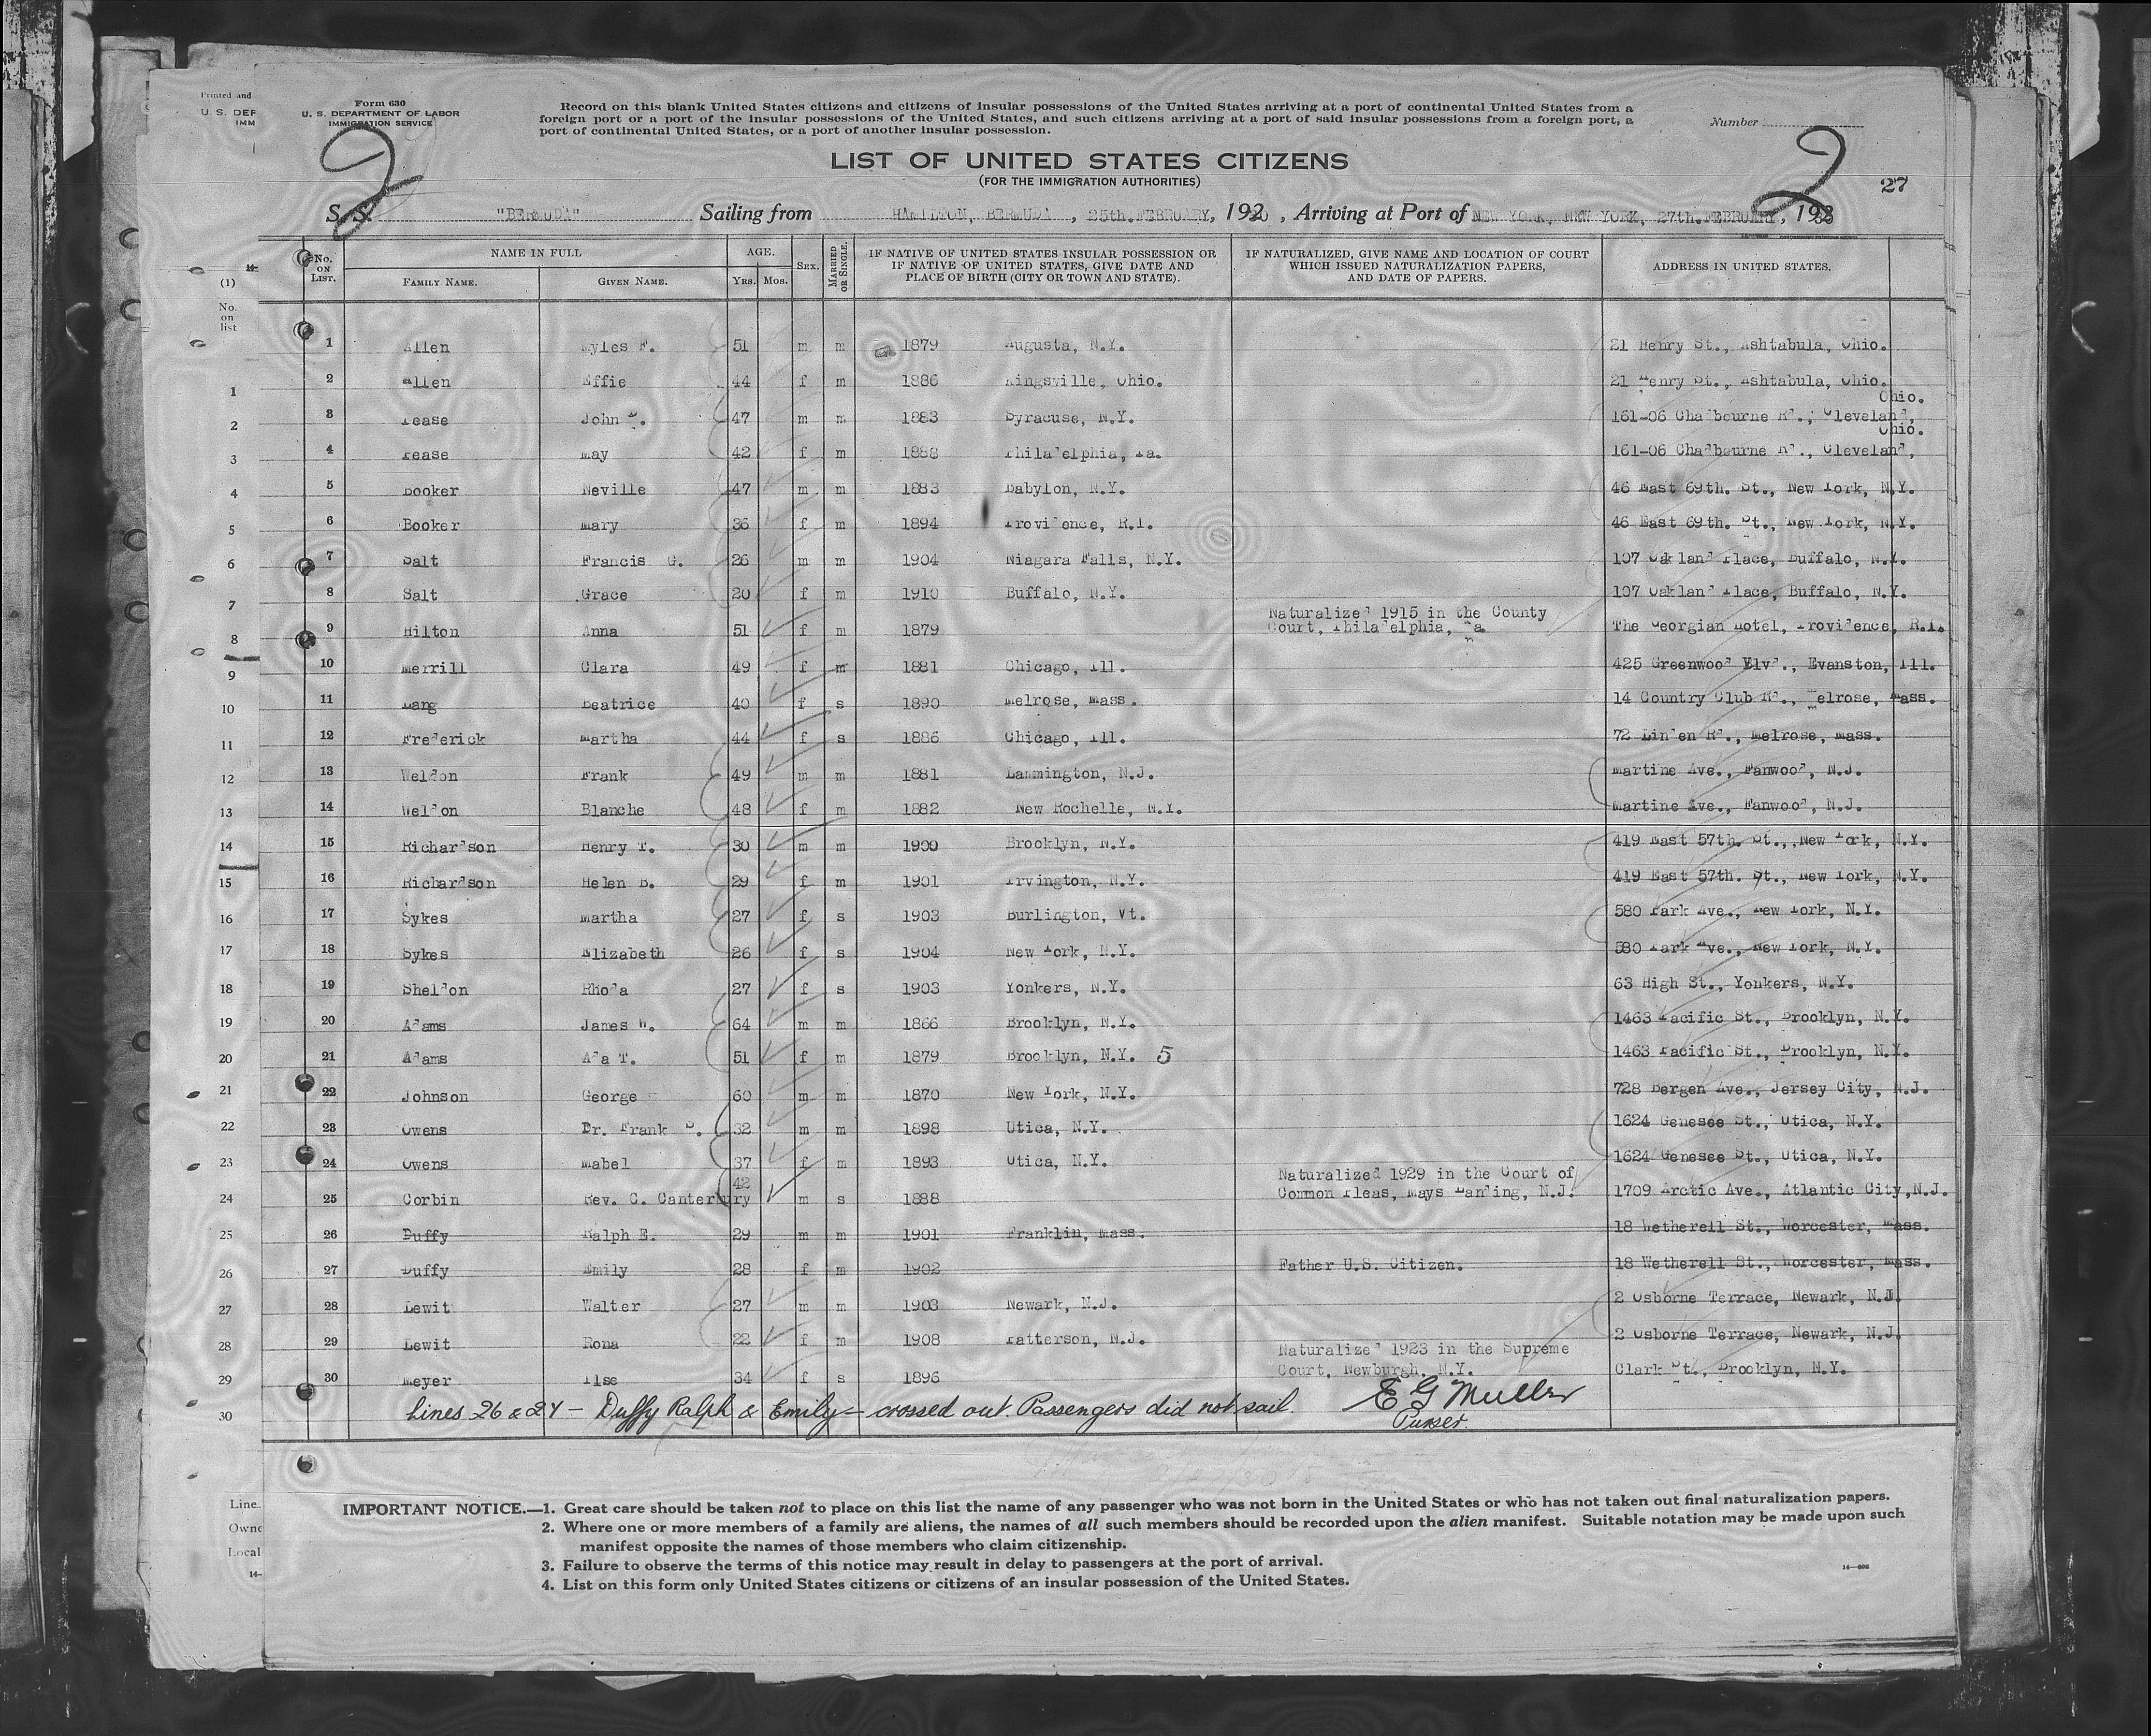 Printed and
U. S. DEP
IMM
Form 630
U. S. DEPARTMENT OF LABOR
IMMIGRATION SERVICE
Record on this blank United States citizens and citizens of insular possessions of the United States arriving at a port of continental United States from a
foreign port or a port of the insular possessions of the United States, and such citizens arriving at a port of said insular possessions from a foreign port, a
port of continental United States, or a port of another insular possession.
Number
2
2
LIST OF UNITED STATES CITIZENS
(FOR THE IMMIGRATION AUTHORITIES)
27
S. S. "BERMUDA" Sailing from HAMILTON, BERMUDA, 25th. FEBRUARY, 1930, Arriving at Port of NEW YORK, NEW YORK, 27th. FEBRUARY, 1930
No. ON LIST. NAME IN FULL AGE. SEX. MARRIED OR SINGLE. IF NATIVE OF UNITED STATES INSULAR POSSESSION OR IF NATIVE OF UNITED STATES, GIVE DATE AND PLACE OF BIRTH (CITY OR TOWN AND STATE). IF NATURALIZED, GIVE NAME AND LOCATION OF COURT WHICH ISSUED NATURALIZATION PAPERS, AND DATE OF PAPERS. ADDRESS IN UNITED STATES.
FAMILY NAME. GIVEN NAME. YRS. MOS.
(1)
No. on list
1 Allen Myles F. 51 m m 1879 Augusta, N.Y. 21 Henry St., Ashtabula, Ohio.
2 Allen Effie 44 f m 1886 Kingsville, Ohio. 21 Henry St., Ashtabula, Ohio.
3 Pease John 47 m m 1883 Syracuse, N.Y. 161-06 Chadbourne Rd., Cleveland, Ohio.
4 Pease May 42 f m 1888 Philadelphia, Pa. 161-06 Chadbourne Rd., Cleveland, Ohio.
5 Booker Neville 47 m m 1883 Babylon, N.Y. 46 East 69th. St., New York, N.Y.
6 Booker Mary 36 f m 1894 Providence, R.I. 46 East 69th. St., New York, N.Y.
7 Salt Francis G. 26 m m 1904 Niagara Falls, N.Y. 107 Oakland Place, Buffalo, N.Y.
8 Salt Grace 20 f m 1910 Buffalo, N.Y. 107 Oakland Place, Buffalo, N.Y.
9 Hilton Anna 51 f m 1879 Naturalized 1915 in the County Court, Philadelphia, Pa. The Georgian Hotel, Providence, R.I.
10 Merrill Clara 49 f m 1881 Chicago, Ill. 425 Greenwood Blvd., Evanston, Ill.
11 Lang Beatrice 40 f s 1890 Melrose, Mass. 14 Country Club Rd., Melrose, Mass.
12 Frederick Martha 44 f s 1886 Chicago, Ill. 72 Linden Rd., Melrose, Mass.
13 Weldon Frank 49 m m 1881 Lammington, N.J. Martine Ave., Fanwood, N.J.
14 Weldon Blanche 48 f m 1882 New Rochelle, N.Y. Martine Ave., Fanwood, N.J.
15 Richardson Henry T. 30 m m 1900 Brooklyn, N.Y. 419 East 57th. St., New York, N.Y.
16 Richardson Helen B. 29 f m 1901 Irvington, N.Y. 419 East 57th. St., New York, N.Y.
17 Sykes Martha 27 f s 1903 Burlington, Vt. 580 Park Ave., New York, N.Y.
18 Sykes Elizabeth 26 f s 1904 New York, N.Y. 580 Park Ave., New York, N.Y.
19 Sheldon Rhoda 27 f s 1903 Yonkers, N.Y. 63 High St., Yonkers, N.Y.
20 Adams James W. 64 m m 1866 Brooklyn, N.Y. 1463 Pacific St., Brooklyn, N.Y.
21 Adams Ada T. 51 f m 1879 Brooklyn, N.Y. 5 1463 Pacific St., Brooklyn, N.Y.
22 Johnson George 60 m m 1870 New York, N.Y. 728 Bergen Ave., Jersey City, N.J.
23 Owens Dr. Frank 32 m m 1898 Utica, N.Y. 1624 Genesee St., Utica, N.Y.
24 Owens Mabel 37 f m 1893 Utica, N.Y. 1624 Genesee St., Utica, N.Y.
25 Corbin Rev. C. Canterbury 42 m s 1888 Naturalized 1929 in the Court of Common Pleas, Mays Landing, N.J. 1709 Arctic Ave., Atlantic City, N.J.
26 Duffy Ralph E. 29 m m 1901 Franklin, Mass. 18 Wetherell St., Worcester, Mass.
27 Duffy Emily 28 f m 1902 Father U.S. Citizen. 18 Wetherell St., Worcester, Mass.
28 Lewit Walter 27 m m 1903 Newark, N.J. 2 Osborne Terrace, Newark, N.J.
29 Lewit Rona 22 f m 1908 Patterson, N.J. 2 Osborne Terrace, Newark, N.J.
30 Meyer Ilse 34 f s 1896 Naturalized 1923 in the Supreme Court, Newburgh, N.Y. Clark St., Brooklyn, N.Y.
Lines 26 & 27 – Duffy Ralph & Emily – crossed out. Passengers did not sail. E G Muller
Purser.
Line
Owne
Local
14-
IMPORTANT NOTICE.—1. Great care should be taken not to place on this list the name of any passenger who was not born in the United States or who has not taken out final naturalization papers.
2. Where one or more members of a family are aliens, the names of all such members should be recorded upon the alien manifest. Suitable notation may be made upon such
manifest opposite the names of those members who claim citizenship.
3. Failure to observe the terms of this notice may result in delay to passengers at the port of arrival.
4. List on this form only United States citizens or citizens of an insular possession of the United States.